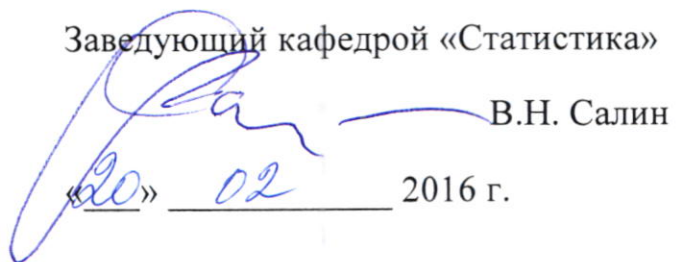 Заведующий кафедрой «Статистика»
В.Н. Салин
«20» 02 2016 г.